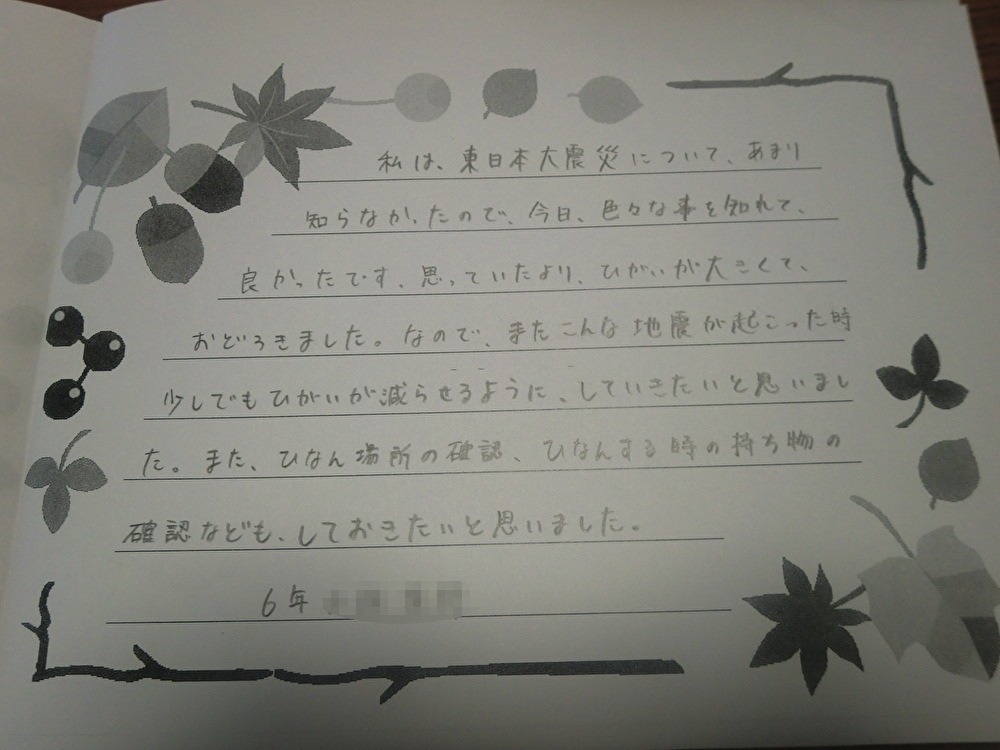 私は、東日本大震災について、あまり
知らなかったので、今日、色々な事を知れて、
良かったです。思っていたより、ひがいが大きくて、
おどろきました。なので、またこんな地震が起こった時
少しでもひがいが減らせるように、していきたいと思いまし
た。また、ひなん場所の確認、ひなんする時の持ち物の
確認なども、しておきたいと思いました。
6年